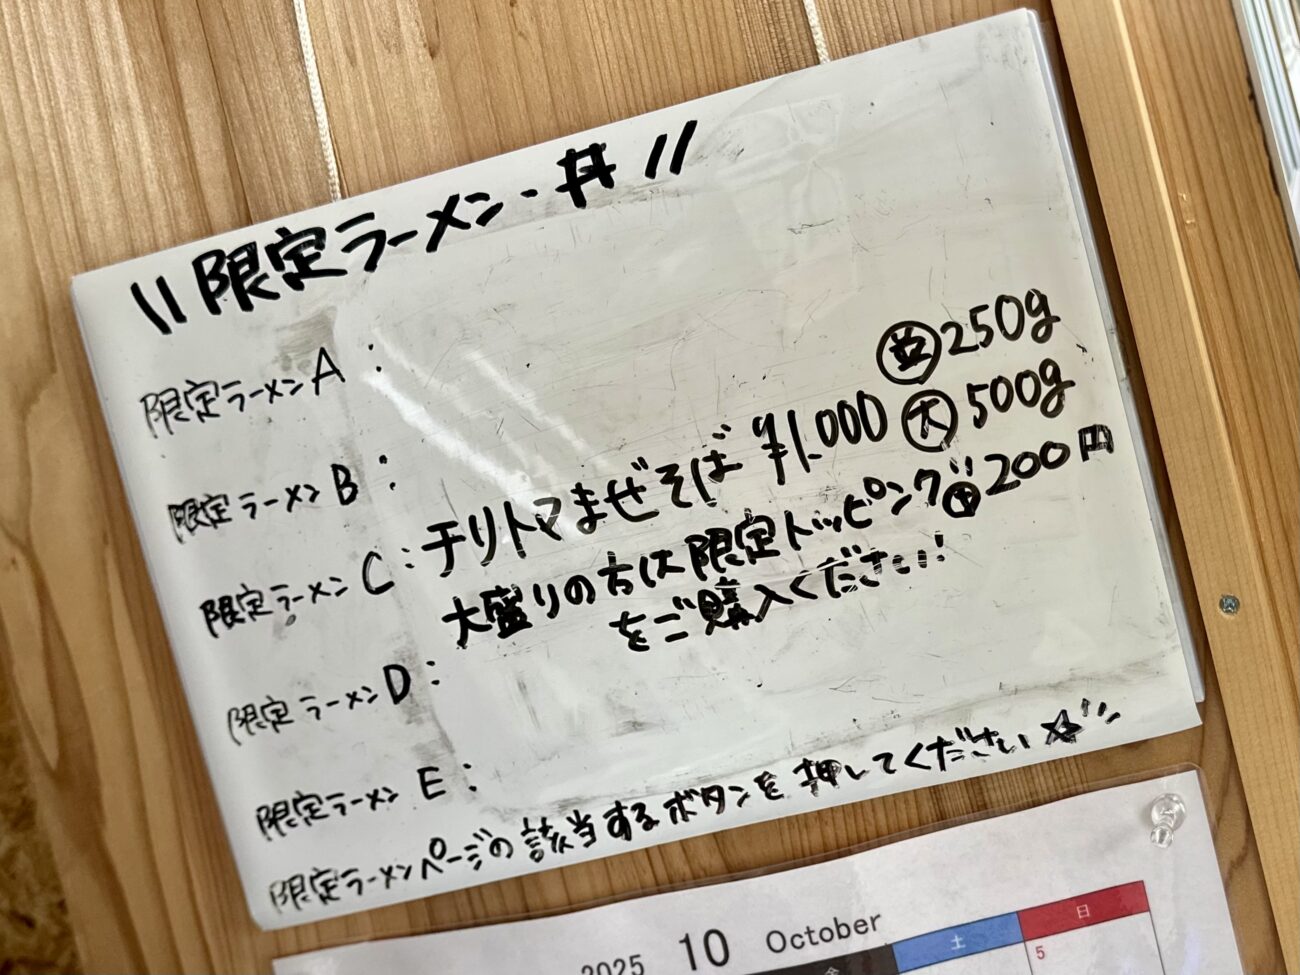 \\ 限定ラーメン・丼 //
限定ラーメンA:
限定ラーメンB:
限定ラーメンC: チリトマまぜそば ¥1.000 並250g
大500g
大盛りの方は限定トッピング 200円
をご購入ください!
限定ラーメンD:
限定ラーメンE:
限定ラーメンページの該当するボタンを押してください☆
2025 10 October
金 土 日
5